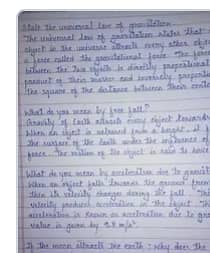 State the universal law of gravitation
The universal law of gravitation states that
object in the universe attracts every other object
a force called the gravitational force. The force
between the two objects is directly proportional
product of their masses and inversely proportional
the square of the distance between their centr
What do you mean by free fall?
Gravity of Earth attracts every object towards
When an object is released from a height, it f
the surface of the Earth under the influence of
force. The motion of the object is said to have
What do you mean by acceleration due to gravit
When an object falls towards the ground from
then its velocity changes during the fall. This
velocity produces acceleration in the object. Th
acceleration is known as acceleration due to gra
value is given by 9.8 m/s²
If the moon attracts the earth, why does the